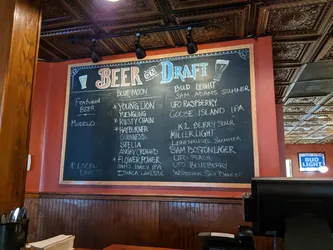 BEER ON DRAFT
Featured
BEER
MODELO
BLUE MOON
★ YOUNG LION
YUENGLING
★ RUSTY CHAIN
★ HAYBURNER
GUINNESS
STELLA
ANGRY ORCHARD
★ FLOWER POWER
ITHACA LAKESIDE
★ LOCAL
BUD LIGHT
SAM ADAMS SUMMER
UFO RASPBERRY
GOOSE ISLAND IPA
K2 BERRY SOUR
MILLER LIGHT
LEINENKUGEL SUMMER
SAM BOSTON LAGER
UFO PEACH
UFO BLUEBERRY
BUD LIGHT